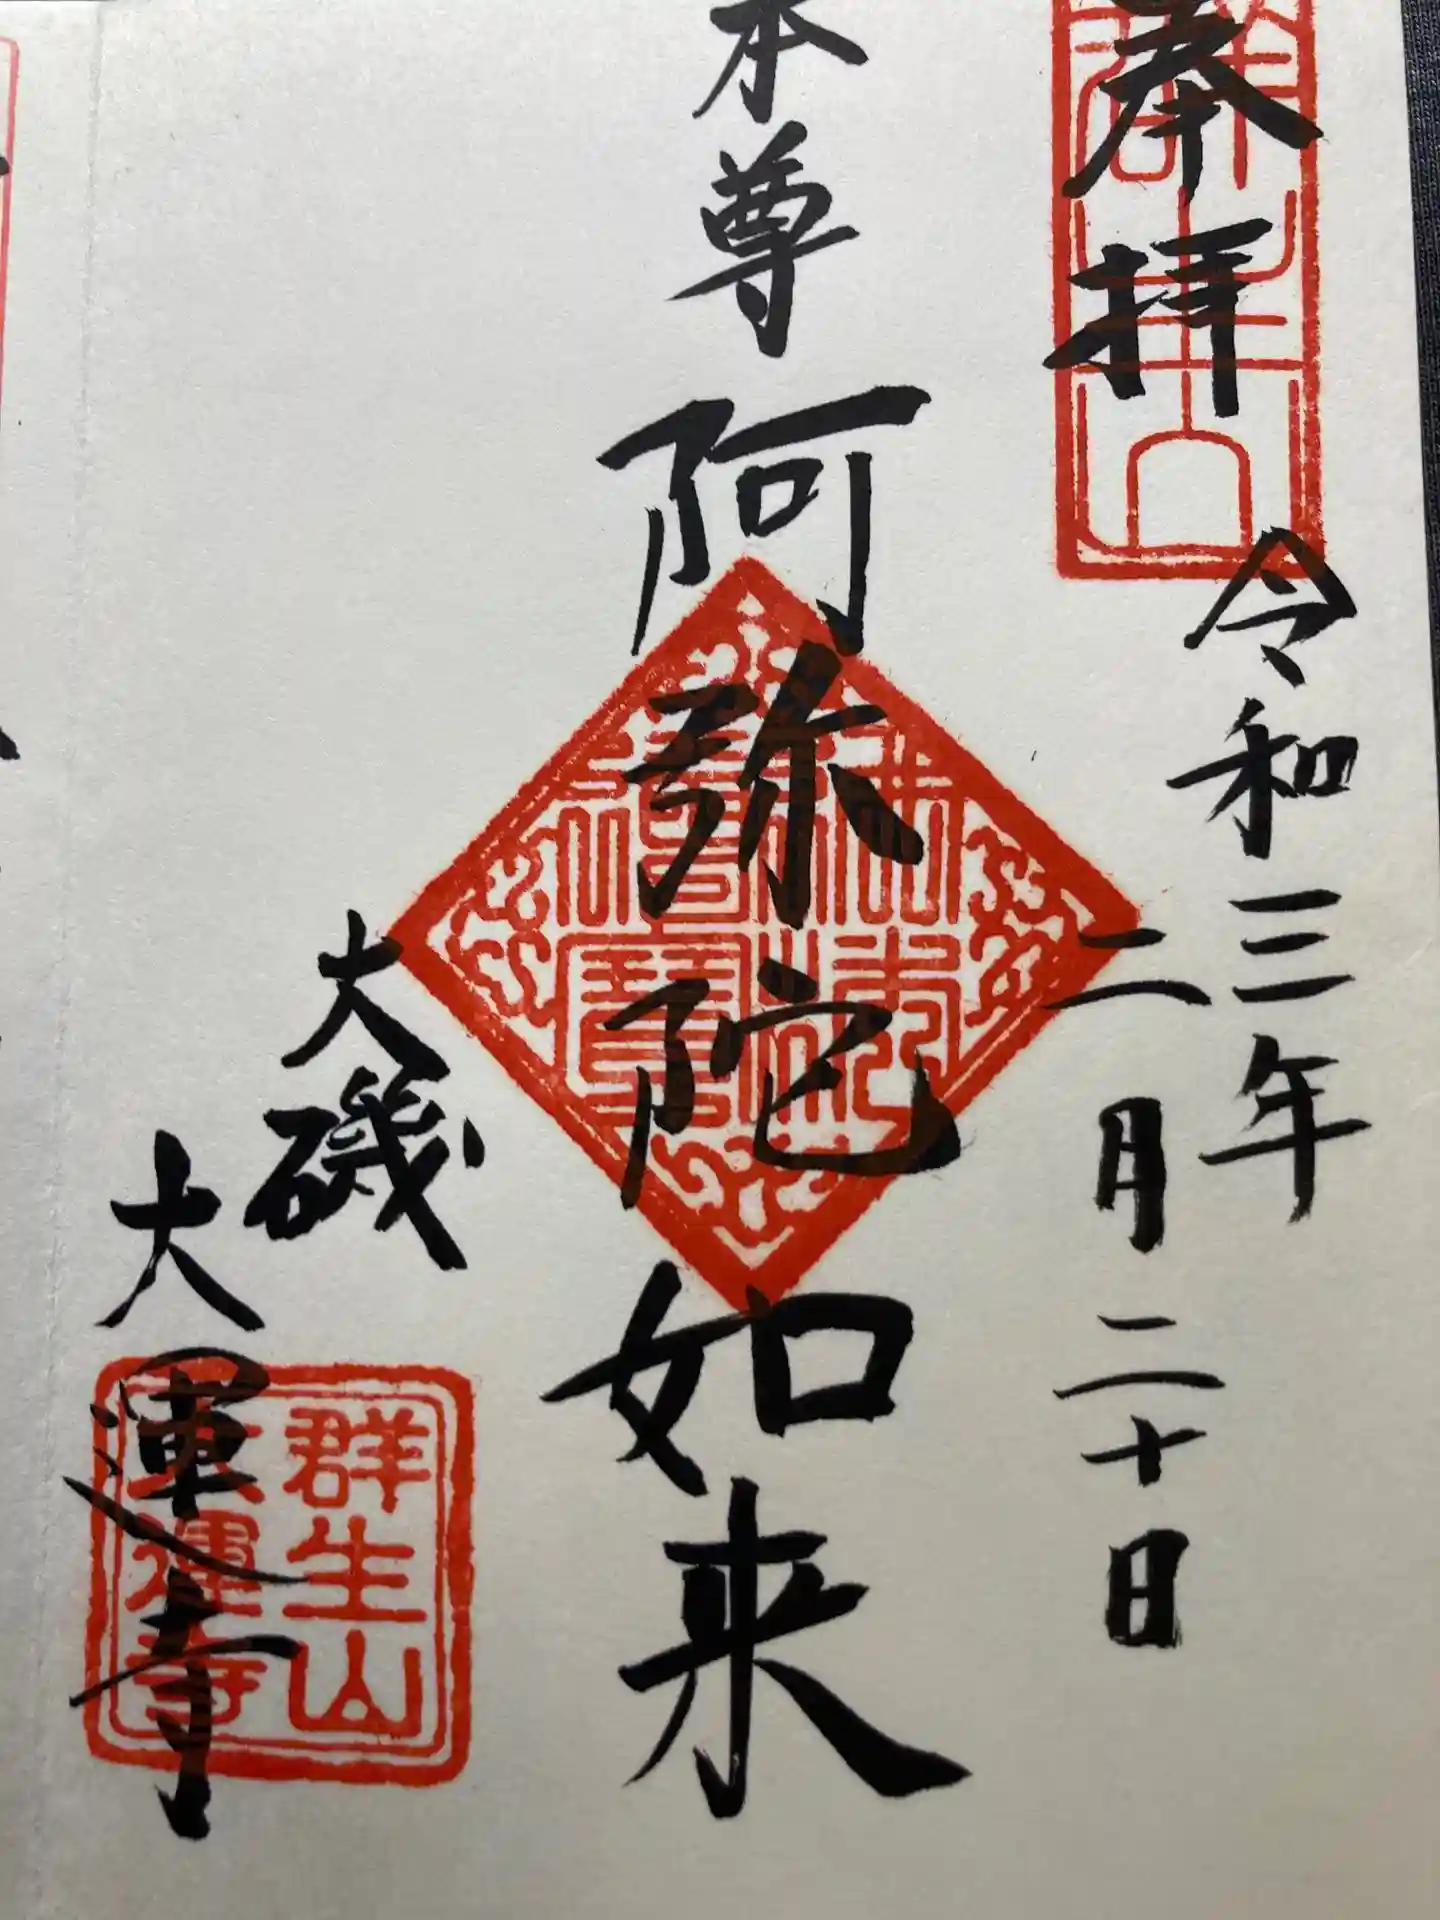 奉拝
令和三年
二月二十日
本尊 阿弥陀如来
大磯
大運寺
群生山
大運寺